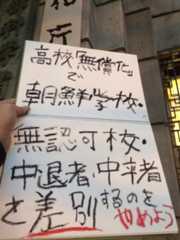 高校「無償化」
で
朝鮮学校・
無認可校・
中退者、中卒者
を差別するのを
やめよう